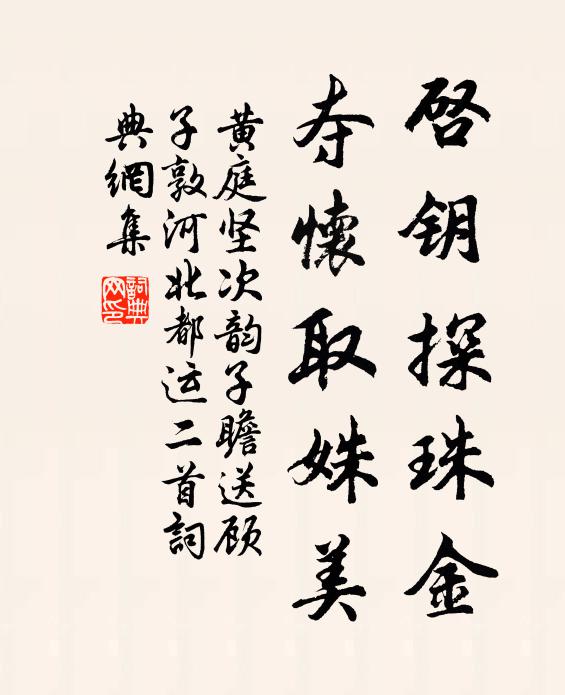 啓钥探珠金
夺懷取姝美
黄庭坚次韵子瞻送顾
子敦河北都运二首詞
典網集
詞典网印